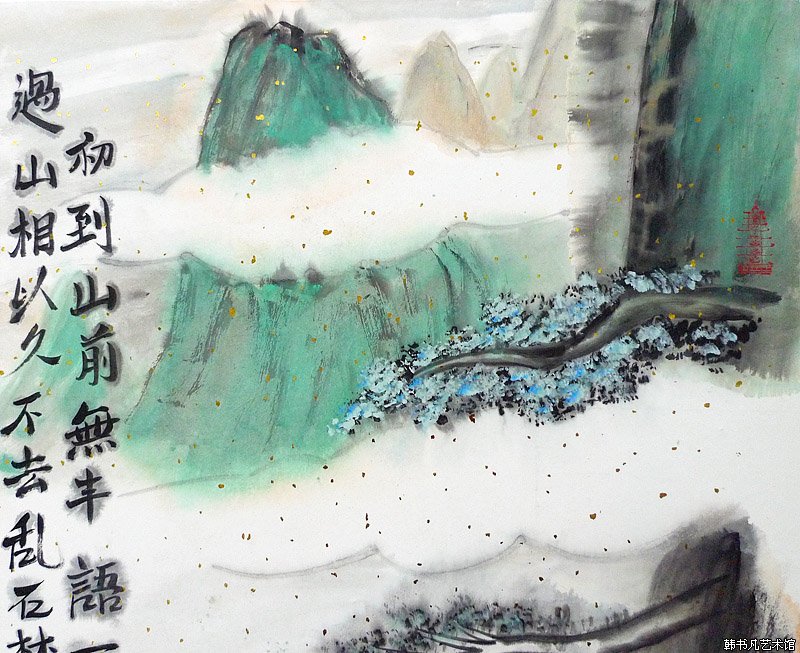 初到山前無丰語
過山相以久不去乱石
韩书凡艺术馆